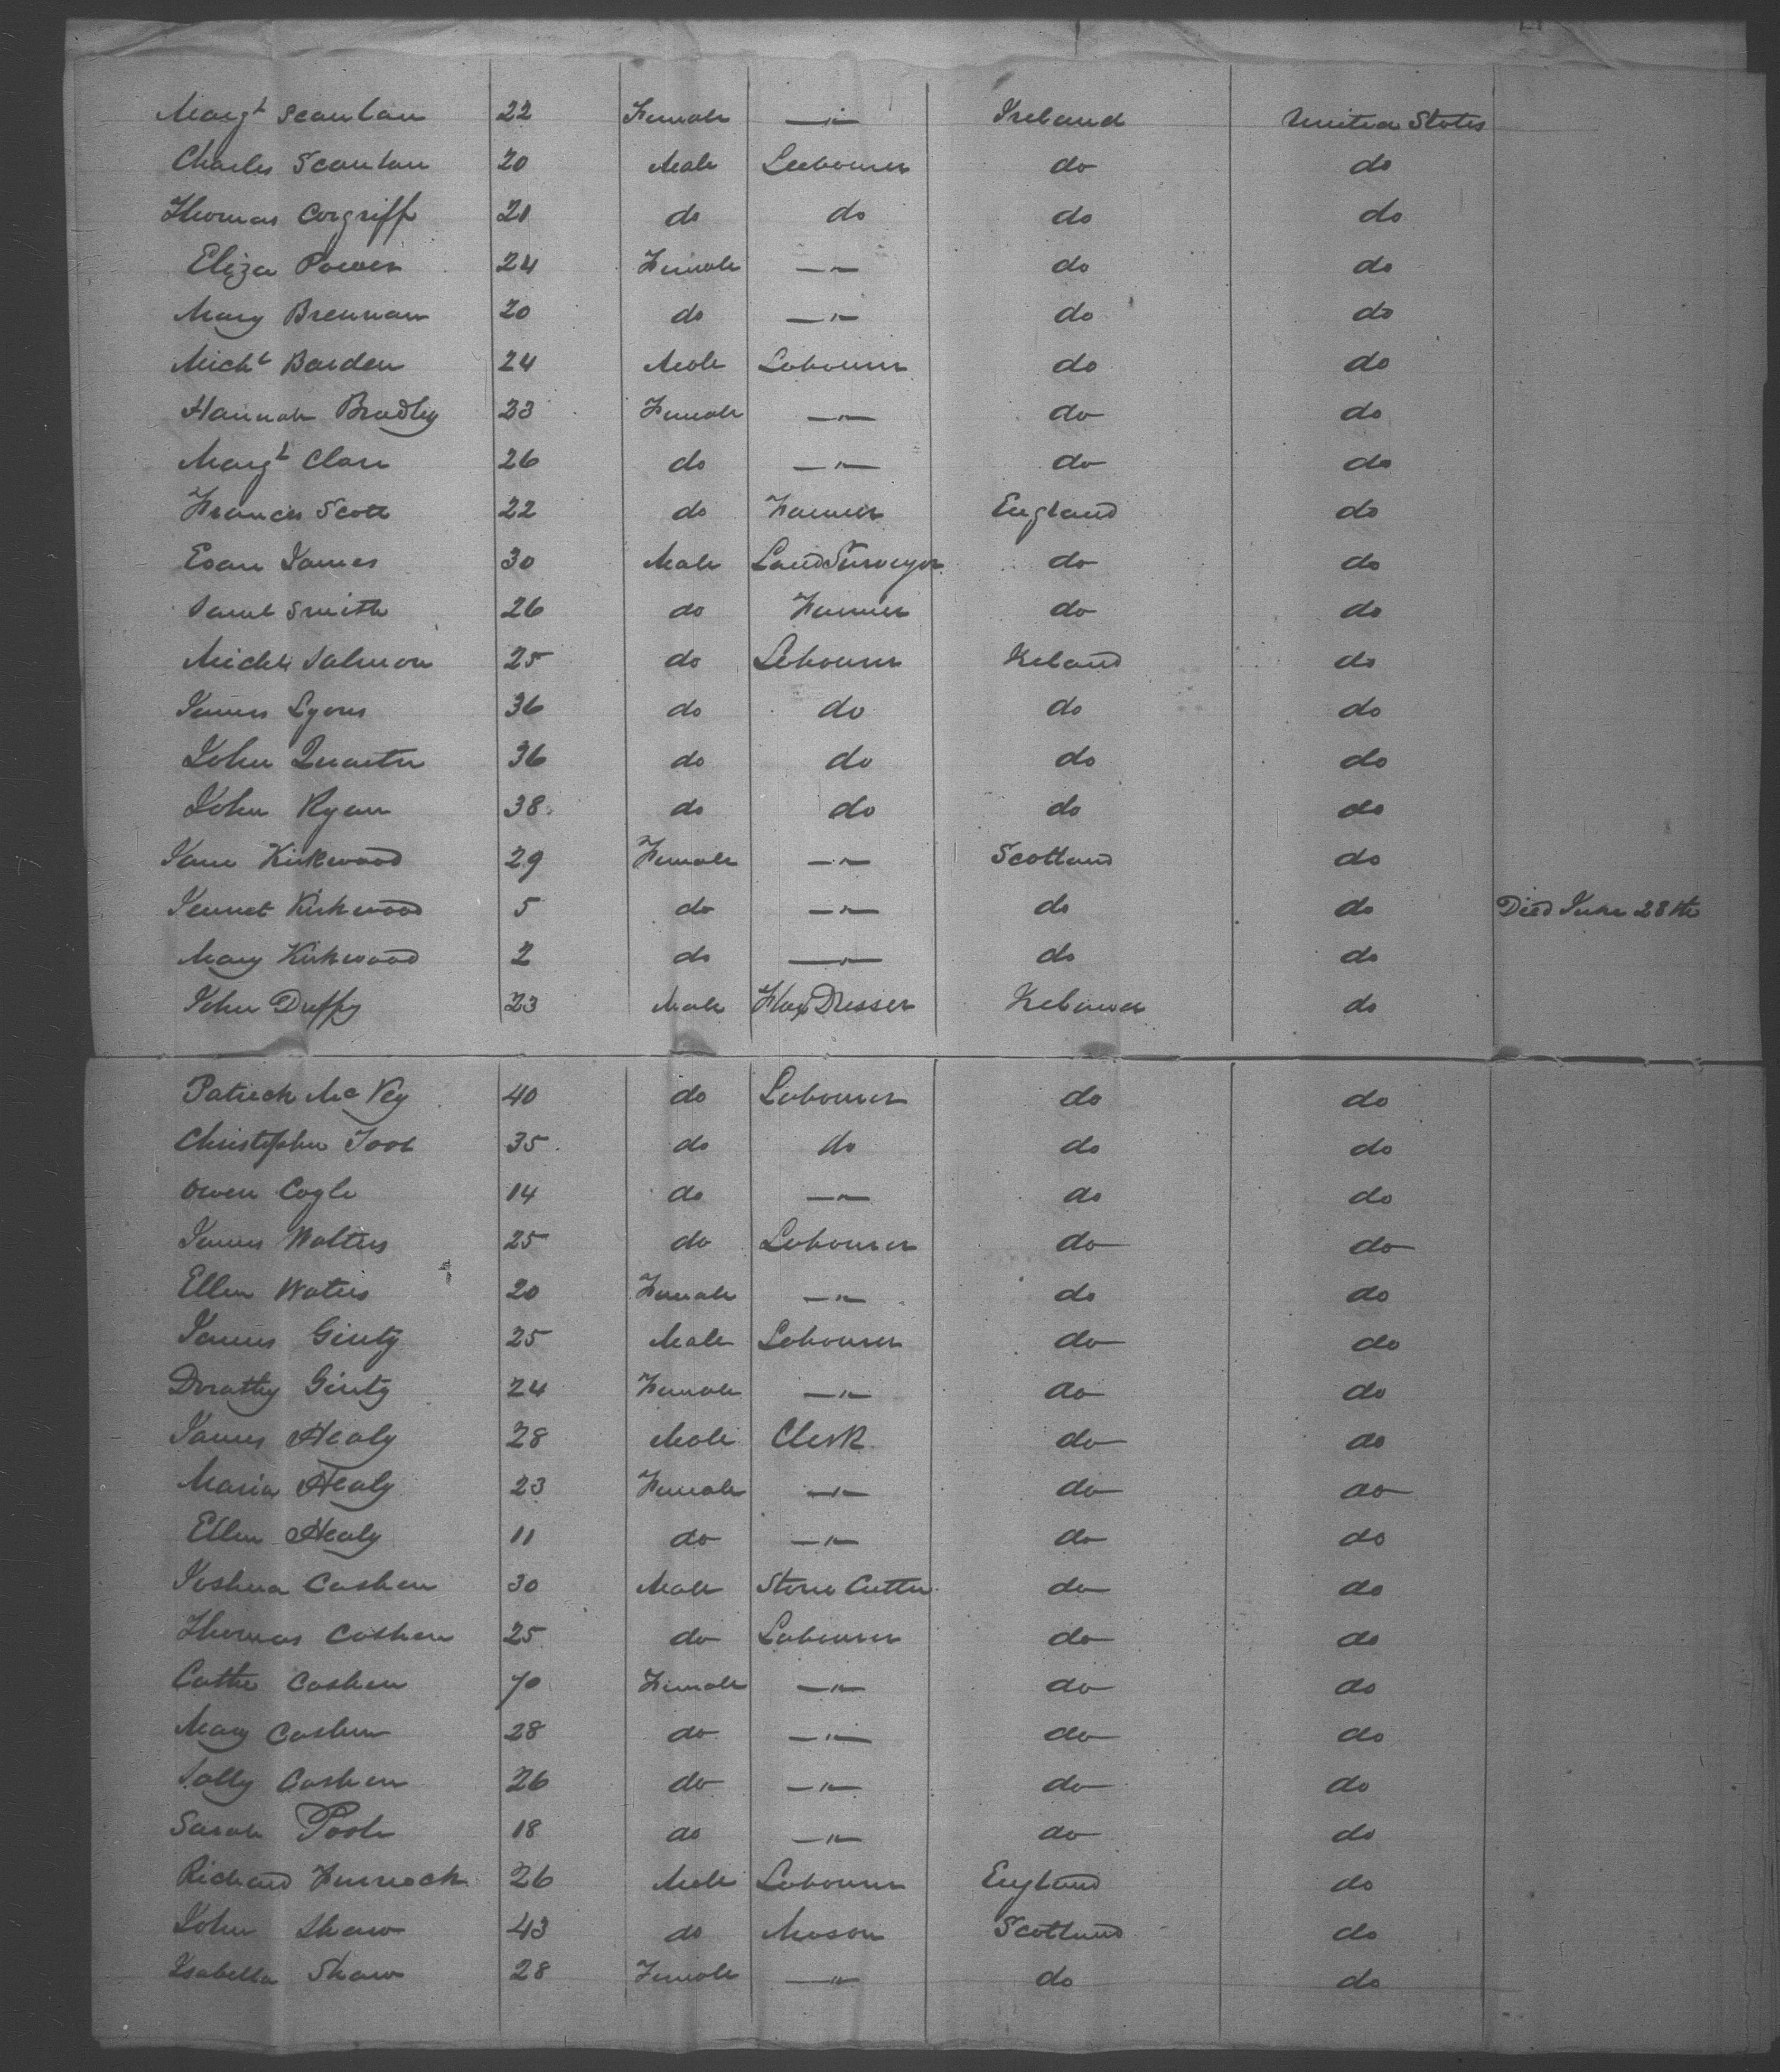 Margt Scanlan 22 Female —"— Ireland United States
Charles Scanlan 20 Male Labourer do do
Thomas Corgriff 21 do do do do
Eliza Power 24 Female —"— do do
Mary Brennan 20 do —"— do do
Michl Barden 24 Male Labourer do do
Hannah Bradley 23 Female —"— do do
Margt Clare 26 do —"— do do
Frances Scott 22 do Farmer England do
Evan James 30 Male Land Surveyor do do
Saml Smith 26 do Farmer do do
Michl Salmon 25 do Labourer Ireland do
James Lyons 36 do do do do
John 36 do do do do
John Ryan 38 do do do do
Jane Kirkwood 29 Female —"— Scotland do
Jennet Kirkwood 5 do —"— do do Died June 28th
Mary Kirkwood 2 do —"— do do
John Duffy 23 Male Flax Dresser Ireland do
Patrick McKey 40 do Labourer do do
Christopher Tool 35 do do do do
Owen Cogle 14 do —"— do do
James Walters 25 do Labourer do do
Ellen Waters 20 Female —"— do do
James Ginty 25 Male Labourer do do
Dorathy Ginty 24 Female —"— do do
James Healy 28 Male Clerk do do
Maria Healy 23 Female —"— do do
Ellen Healy 11 do —"— do do
Joshua Cashen 30 Male Stone Cutter do do
Thomas Cashen 25 do Labourer do do
Cathe Cashen 70 Female —"— do do
Mary Cashen 28 do —"— do do
Sally Cashen 26 do —"— do do
Sarah Poole 18 do —"— do do
Richard 26 Male Labourer England do
John Shaw 43 do Mason Scotland do
Isabella Shaw 28 Female —"— do do